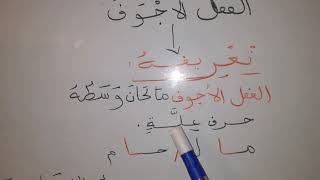 الفعل الأجوف
تعريفه:
الفعل الأجوف ما كان وسطه
حرف علة.